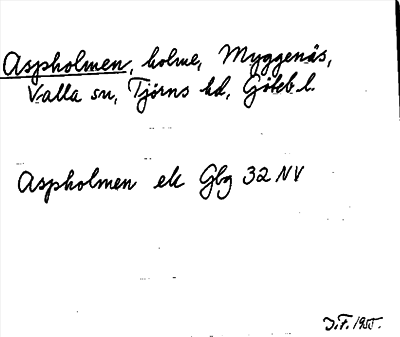 Aspholmen, holme, Myggenäs,
Valla sn, Tjörns hd, Göteb l.
Aspholmen ek Gbg 32 NV
J.F. 1955.